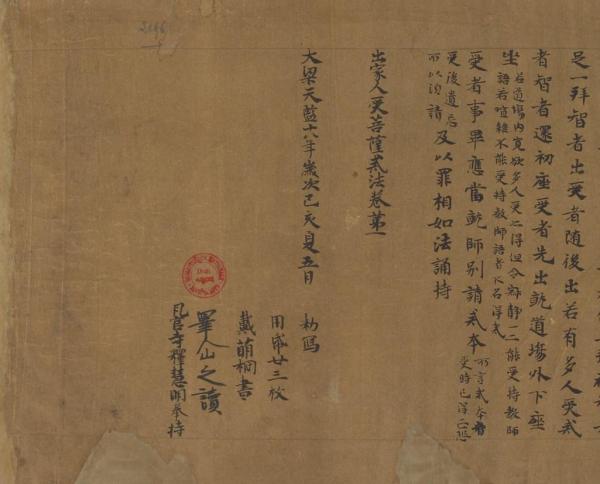 足一拜智者出受者隨後出若有多人受戒
者智者還初座受者先出就道場外下座
坐 若道場內寬欲多人受亦得但令寂靜一一能受持教師
語若喧雜不能受持教師語者不名得戒
受者事畢應當就師別請戒本 所言戒本者
受時已得
受後遺忘
所以須請 及以罪相如法誦持
出家人受菩薩戒法卷第一
大梁天監十八年歲次己亥夏五月 勑寫
用紙廿三枚
戴萌桐書
睪公之讀
瓦官寺釋慧明奉持
2196